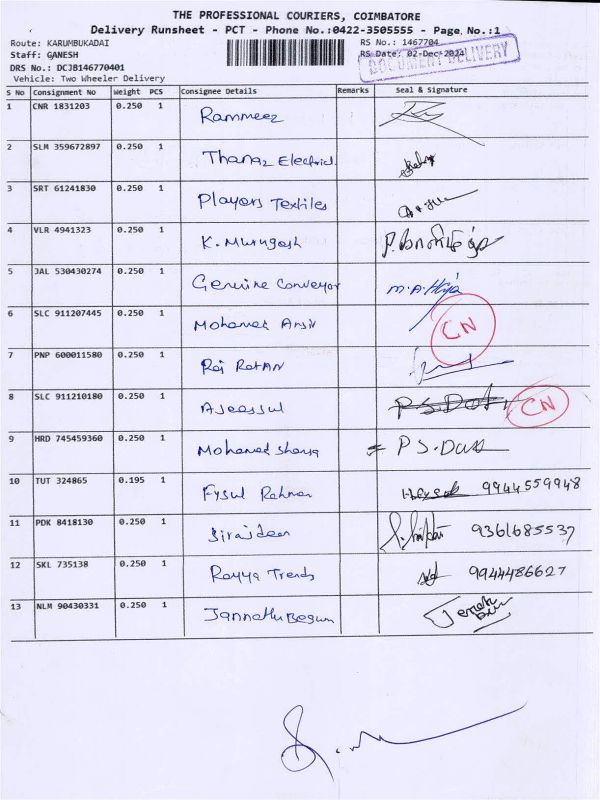 THE PROFESSIONAL COURIERS, COIMBATORE
Delivery Runsheet - PCT - Phone No.:0422-3505555 - Page No.:1
Route: KARUMBUKADAI RS No.: 1467704
Staff: GANESH RS Date: 02-Dec-2024
DOCUMENT DELIVERY
DRS No.: DCJB146770401
Vehicle: Two Wheeler Delivery
S No Consignment No Weight PCS Consignee Details Remarks Seal & Signature
1 CNR 1831203 0.250 1 Rammeez
2 SLM 359672897 0.250 1 Thanaz Electrical
3 SRT 61241830 0.250 1 Players Textiles
4 VLR 4941323 0.250 1 K. Murugesh
5 JAL 530430274 0.250 1 Genuine Conveyor
6 SLC 911207445 0.250 1 Mohamed CN
7 PNP 600011580 0.250 1
8 SLC 911210180 0.250 1 CN
9 HRD 745459360 0.250 1 Mohamed P S. Dass
10 TUT 324865 0.195 1 Fysul Rahman 9944559948
11 PDK 8418130 0.250 1 Sirajdeen 9361685537
12 SKL 735138 0.250 1 Rayya Trends 9944486627
13 NLM 90430331 0.250 1 Jannathu Begum